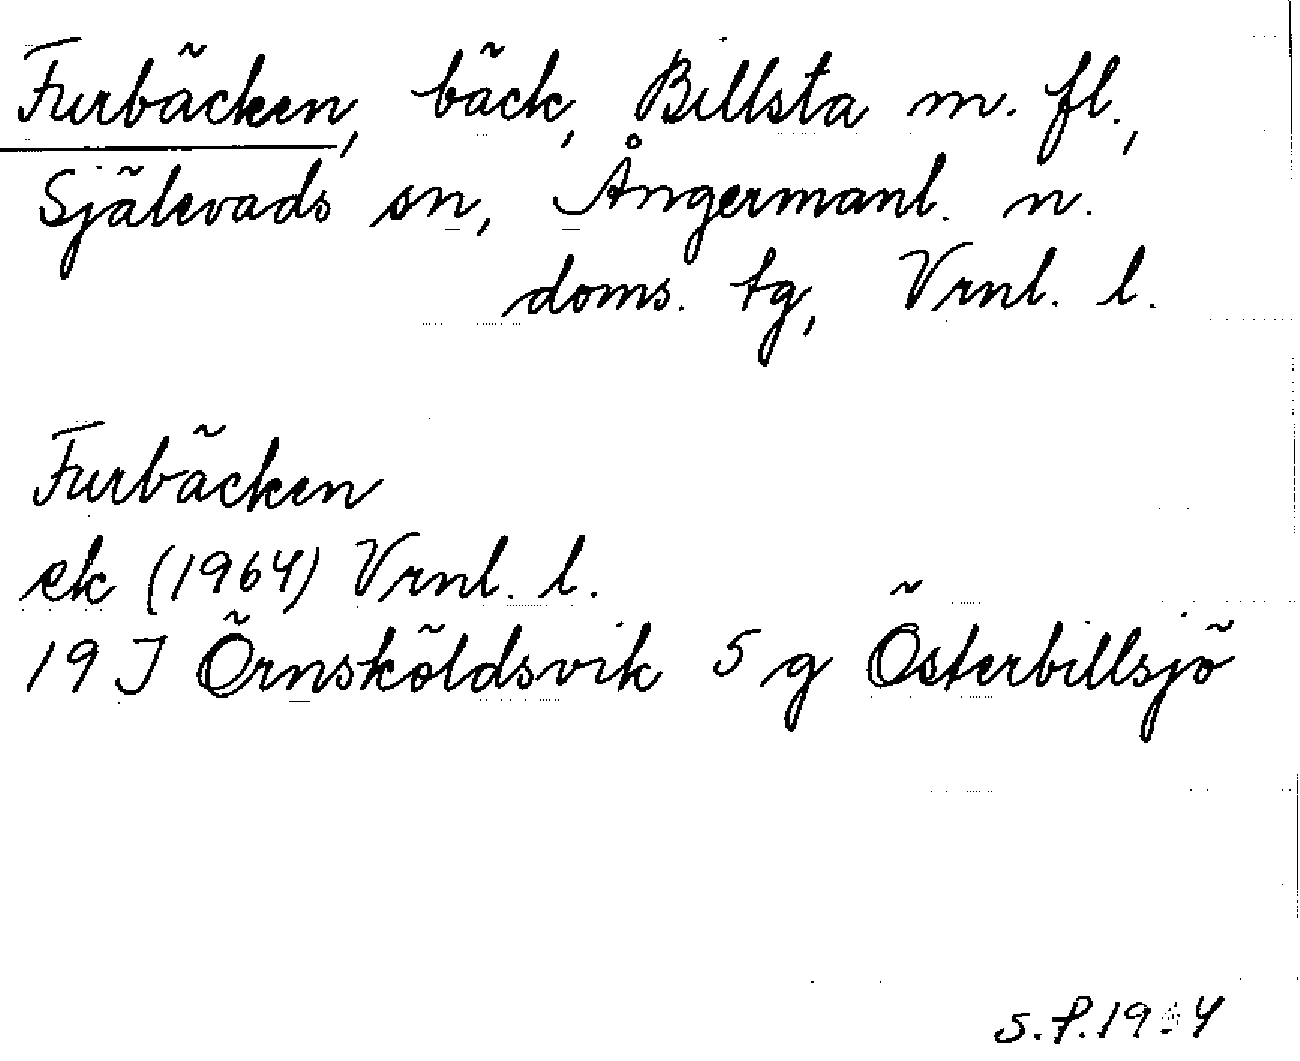 Furbäcken, bäck, Billsta m. fl.,
Själevads sn, Ångermanl. n.
doms. tg, Vrnl. l.
Furbäcken
ek (1964) Vrnl. l.
19 J Örnsköldsvik 5 g Österbillsjö
S.P. 1964